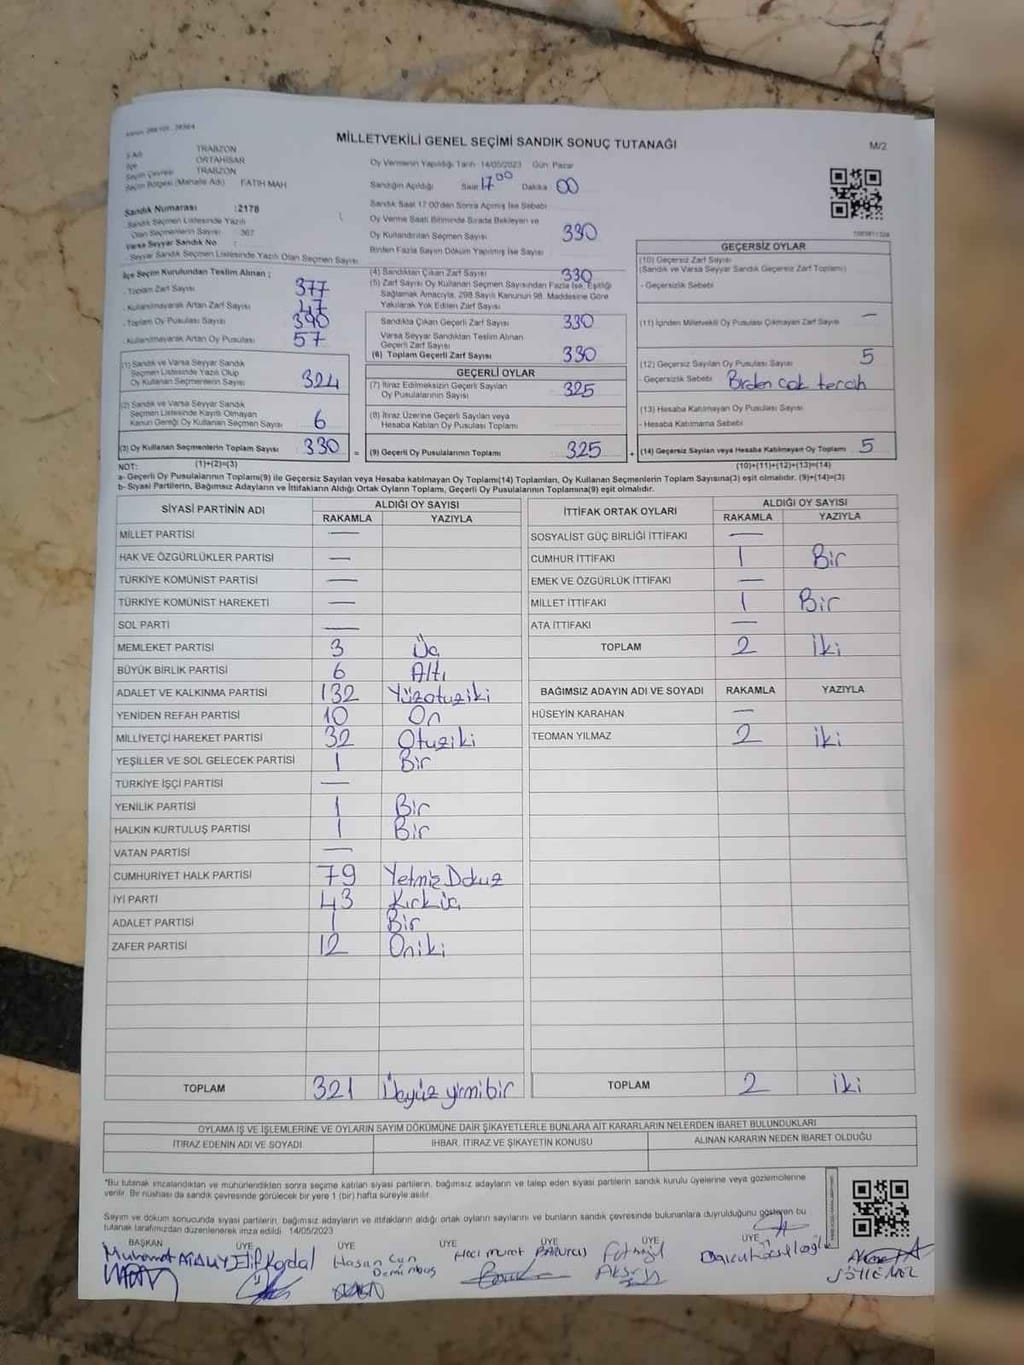 MİLLETVEKİLİ GENEL SEÇİMİ SANDIK SONUÇ TUTANAĞI
M/2
İl Adı TRABZON
İlçe ORTAHİSAR
Seçim Çevresi TRABZON
Seçim Bölgesi (Mahalle Adı) FATİH MAH
Sandık Numarası :2178
Sandık Seçmen Listesinde Yazılı
Olan Seçmenlerin Sayısı : 367
Varsa Seyyar Sandık No :
Seyyar Sandık Seçmen Listesinde Yazılı Olan Seçmen Sayısı
Oy Vermenin Yapıldığı Tarih 14/05/2023 Gün Pazar
Sandığın Açıldığı Saat 17 00 Dakika 00
Sandık Saat 17:00'den Sonra Açılmış İse Sebebi
Oy Verme Saati Bitiminde Sırada Bekleyen ve
Oy Kullandırılan Seçmen Sayısı 330
Birden Fazla Sayım Döküm Yapılmış İse Sayısı
İlçe Seçim Kurulundan Teslim Alınan ;
- Toplam Zarf Sayısı 377
- Kullanılmayarak Artan Zarf Sayısı 47
- Toplam Oy Pusulası Sayısı
- Kullanılmayarak Artan Oy Pusulası 57
(1) Sandık ve Varsa Seyyar Sandık
Seçmen Listesinde Yazılı Olup
Oy Kullanan Seçmenlerin Sayısı 324
(2) Sandık ve Varsa Seyyar Sandık
Seçmen Listesinde Kayıtlı Olmayan
Kanun Gereği Oy Kullanan Seçmen Sayısı 6
(3) Oy Kullanan Seçmenlerin Toplam Sayısı 330
(4) Sandıktan Çıkan Zarf Sayısı 330
(5) Zarf Sayısı Oy Kullanan Seçmen Sayısından Fazla İse, Eşitliği
Sağlamak Amacıyla, 298 Sayılı Kanunun 98. Maddesine Göre
Yakılarak Yok Edilen Zarf Sayısı
Sandıkta Çıkan Geçerli Zarf Sayısı 330
Varsa Seyyar Sandıktan Teslim Alınan
Geçerli Zarf Sayısı
(6) Toplam Geçerli Zarf Sayısı 330
GEÇERLİ OYLAR
(7) İtiraz Edilmeksizin Geçerli Sayılan
Oy Pusulalarının Sayısı 325
(8) İtiraz Üzerine Geçerli Sayılan veya
Hesaba Katılan Oy Pusulası Toplamı
= (9) Geçerli Oy Pusulalarının Toplamı 325
GEÇERSİZ OYLAR
(10) Geçersiz Zarf Sayısı
(Sandık ve Varsa Seyyar Sandık Geçersiz Zarf Toplamı)
- Geçersizlik Sebebi
(11) İçinden Milletvekili Oy Pusulası Çıkmayan Zarf Sayısı —
(12) Geçersiz Sayılan Oy Pusulası Sayısı 5
- Geçersizlik Sebebi Birden çok tercih
(13) Hesaba Katılmayan Oy Pusulası Sayısı
- Hesaba Katılmama Sebebi
+ (14) Geçersiz Sayılan veya Hesaba Katılmayan Oy Toplamı 5
NOT: (1)+(2)=(3) (10)+(11)+(12)+(13)=(14)
a- Geçerli Oy Pusulalarının Toplamı(9) ile Geçersiz Sayılan veya Hesaba katılmayan Oy Toplamı(14) Toplamları, Oy Kullanan Seçmenlerin Toplam Sayısına(3) eşit olmalıdır. (9)+(14)=(3)
b- Siyasi Partilerin, Bağımsız Adayların ve İttifakların Aldığı Ortak Oyların Toplamı, Geçerli Oy Pusulalarının Toplamına(9) eşit olmalıdır.
SİYASİ PARTİNİN ADI ALDIĞI OY SAYISI
RAKAMLA YAZIYLA
MİLLET PARTİSİ —
HAK VE ÖZGÜRLÜKLER PARTİSİ —
TÜRKİYE KOMÜNİST PARTİSİ —
TÜRKİYE KOMÜNİST HAREKETİ —
SOL PARTİ —
MEMLEKET PARTİSİ 3 Üç
BÜYÜK BİRLİK PARTİSİ 6 Altı
ADALET VE KALKINMA PARTİSİ 132 Yüzotuziki
YENİDEN REFAH PARTİSİ 10 On
MİLLİYETÇİ HAREKET PARTİSİ 32 Otuziki
YEŞİLLER VE SOL GELECEK PARTİSİ 1 Bir
TÜRKİYE İŞÇİ PARTİSİ —
YENİLİK PARTİSİ 1 Bir
HALKIN KURTULUŞ PARTİSİ 1 Bir
VATAN PARTİSİ —
CUMHURİYET HALK PARTİSİ 79 Yetmiş Dokuz
İYİ PARTİ 43 Kırküç
ADALET PARTİSİ 1 Bir
ZAFER PARTİSİ 12 Oniki
TOPLAM 321 Üçyüz yirmibir
İTTİFAK ORTAK OYLARI ALDIĞI OY SAYISI
RAKAMLA YAZIYLA
SOSYALİST GÜÇ BİRLİĞİ İTTİFAKI —
CUMHUR İTTİFAKI 1 Bir
EMEK VE ÖZGÜRLÜK İTTİFAKI —
MİLLET İTTİFAKI 1 Bir
ATA İTTİFAKI —
TOPLAM 2 İki
BAĞIMSIZ ADAYIN ADI VE SOYADI RAKAMLA YAZIYLA
HÜSEYİN KARAHAN —
TEOMAN YILMAZ 2 iki
TOPLAM 2 iki
OYLAMA İŞ VE İŞLEMLERİNE VE OYLARIN SAYIM DÖKÜMÜNE DAİR ŞİKAYETLERLE BUNLARA AİT KARARLARIN NELERDEN İBARET BULUNDUKLARI
İTİRAZ EDENİN ADI VE SOYADI İHBAR, İTİRAZ VE ŞİKAYETİN KONUSU ALINAN KARARIN NEDEN İBARET OLDUĞU
*Bu tutanak imzalandıktan ve mühürlendikten sonra seçime katılan siyasi partilerin, bağımsız adayların ve talep eden siyasi partilerin sandık kurulu üyelerine veya gözlemcilerine
verilir. Bir nüshası da sandık çevresinde görülecek bir yere 1 (bir) hafta süreyle asılır.
Sayım ve döküm sonucunda siyasi partilerin, bağımsız adayların ve ittifakların aldığı ortak oyların sayılarını ve bunların sandık çevresinde bulunanlara duyrulduğunu gösteren bu
tutanak tarafımızdan düzenlenerek imza edildi. 14/05/2023
BAŞKAN ÜYE ÜYE ÜYE ÜYE ÜYE ÜYE
Muhammet Elif Hasan Can Hacı Murat